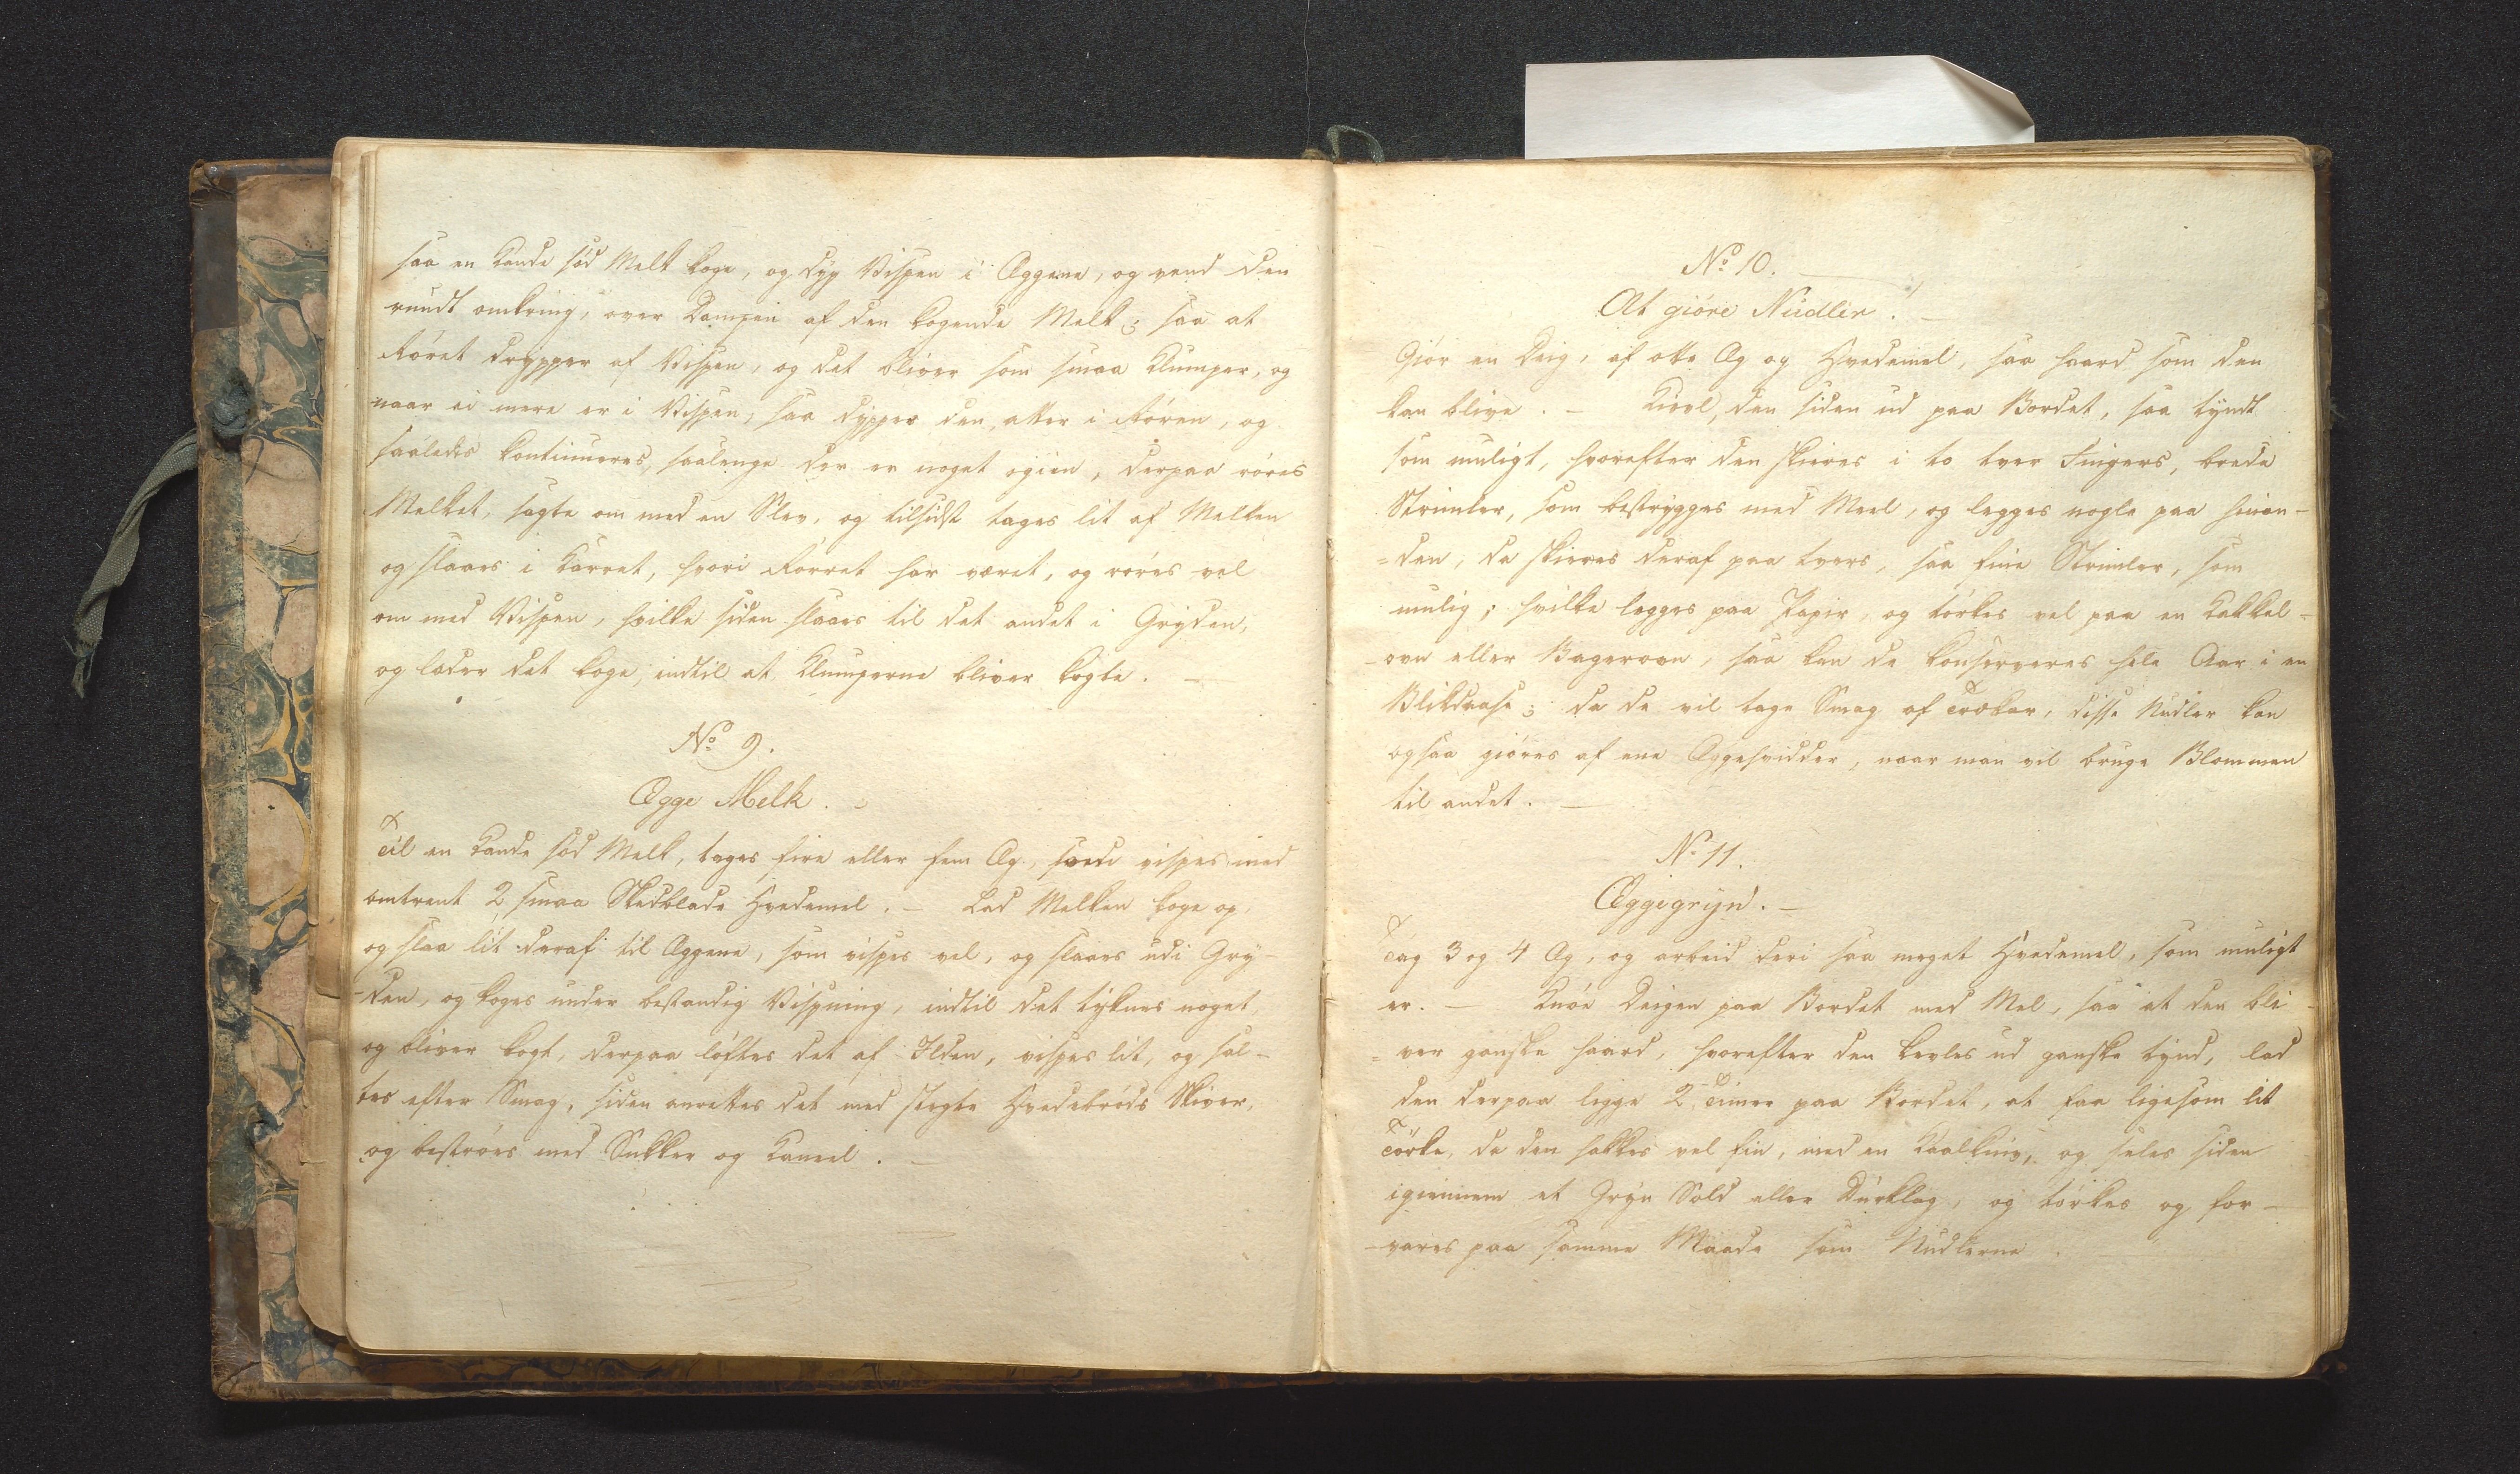 saa en Kande söd Melk koge, og dyp Vispen i Æggene, og vend den
rundt omkring, over Dampen af den kogende Melk; saa at
Röret drypper af Vispen, og det bliver som smaa Klumper, og
naar ei mere er i Vispen, saa dyppes den atter i Rören, og
saaledes kontinueres, saalenge der er noget igien, derpaa röres
Melket, sagte om med en Slev, og tilsidst tages lit af Melken
og slaaes i Karret, hvori Rörret har været, og röres vel
om med Vispen, hvilke siden slaaes til det andet i Gryden,
og lader det koge, indtil at Klumperne bliver kogte. –
No 9.
Ægge Melk.
Til en Kande söd Melk, tages fire eller fem Æg, som vispes med
omtrent 2 smaa Skedblade Hvedemel. – Lad Melken koge op,
og slaa lit deraf til Æggene, som vispes vel, og slaaes udi Gry-
-den, og koges under bestandig Vispning, indtil det tyknes noget,
og bliver kogt, derpaa löftes det af Ilden, vispes lit, og sal-
tes efter Smag, siden anrettes det med stegte Hvedebröds Skiver,
og beströes med Sukker og Kaneel. –
No 10.
At giöre Nudler. –
Giör en Deig, af otte Æg og Hvedemel, saa haard som den
kan blive. – Kievl, den siden ud paa Bordet, saa tyndt
som muligt, hvorefter den skieres i to tver Fingers, brede
Strimler, som bestrygges med Meel, og legges nogle paa hinan-
=den, da skieres deraf paa tvers, saa fine Strimler, som
mulig; hvilke legges paa Papir, og törkes vel paa en Kakkel-
-ovn eller Bagerovn, saa kan de konserveres hele Aar i en
Blikdaase; da de vil tage Smag af Trækar, disse Nudler kan
ogsaa giöres af ene Æggehvidder, naar man vil bruge Blommen
til andet. –
No 11.
Æggegryn. –
Tag 3 og 4 Æg, og arbeid deri saa meget Hvedemel, som muligt
er. – Knöe Deigen paa Bordet med Mel, saa at den bli-
=ver ganske haard, hvorefter den kevles ud ganske tynd, lad
den derpaa ligge 2 Timer paa Bordet, at faa ligesom lit
Törke, da den hakkes vel fin, med en Kaalkniv, og seles siden
igiennem et Gryn Sold eller Dürklag, og törkes og for-
-vares paa samme Maade som Nudlerne.